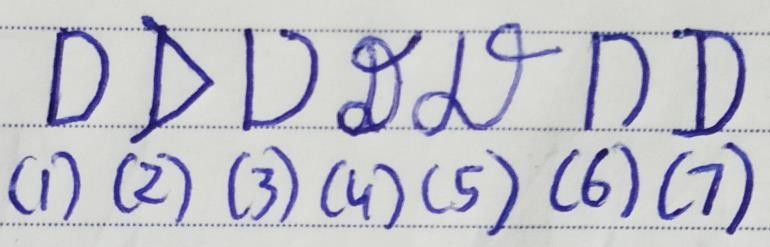 D D D D D D D
(1) (2) (3) (4) (5) (6) (7)